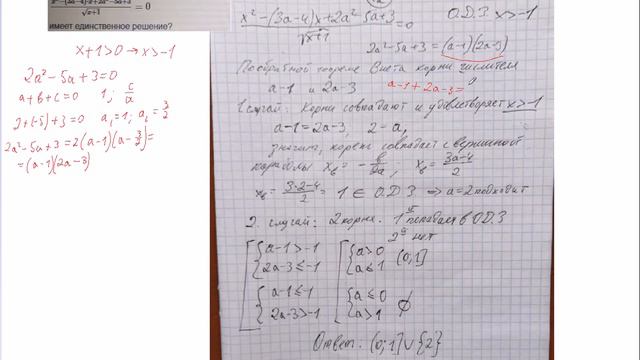 = 0
√x+1
имеет единственное решение?
x+1>0 → x>-1
2a²-5a+3=0
a+b+c=0 1; c/a
2+(-5)+3=0 a₁=1; a₂=3/2
2a²-5a+3=2(a-1)(a-3/2)=
=(a-1)(2a-3)
x²-(3a-4)x+2a²-5a+3 =0 О.Д.З. x>-1
√x+1
2a²-5a+3=(a-1)(2a-3)
По обратной теореме Виета корни числителя
a-1 и 2a-3 a-1+2a-3=
1 случай: Корни совпадают и удовлетворяет x>-1
a-1=2a-3, 2=a,
значит, корень совпадает с вершиной
параболы xв=-b/2a; xв=3a-4/2
xв=3·2-4/2=1 ∈ О.Д.З ⇒ a=2 подходит
2. случай: 2 корня. 1й попадает в О.Д.З
2й нет
[ { a-1>-1 [ { a>0 (0;1]
2a-3≤-1 a≤1
{ a-1≤-1 { a≤0 ∅
2a-3>-1 a>1
Ответ: (0;1]∪{2}